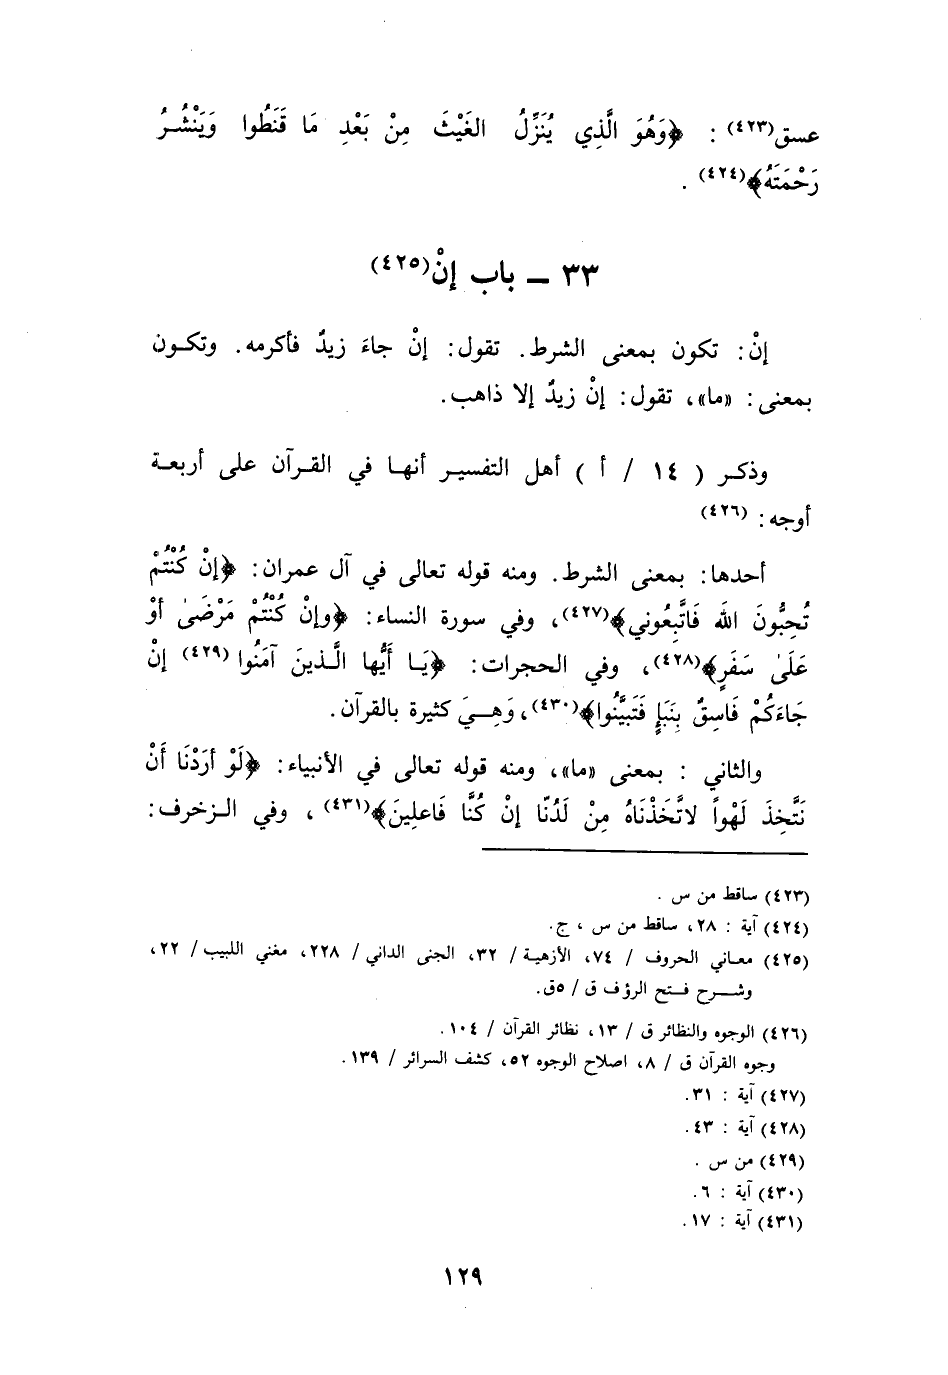 عسق(٤٢٣) : ﴿وَهُوَ الَّذِي يُنَزِّلُ الغَيْثَ مِنْ بَعْدِ مَا قَنَطُوا وَيَنْشُـرُ
رَحْمَتَهُ﴾(٤٢٤) .
٣٣ ــ باب إنْ(٤٢٥)
إنْ: تكون بمعنى الشرط. تقول: إنْ جاءَ زيدٌ فأكرمه. وتكـون
بمعنى: «ما»، تقول: إنْ زيدٌ إلا ذاهب.
وذكـر ( ١٤ / أ ) أهل التفسيـر أنهـا في القـرآن على أربعـة
أوجه: (٤٢٦)
أحدها: بمعنى الشرط. ومنه قوله تعالى في آل عمران: ﴿إنْ كُنْتُمْ
تُحِبُّونَ اللهَ فَاتَّبِعُوني﴾(٤٢٧)، وفي سورة النساء: ﴿وإنْ كُنْتُمْ مَرْضَىٰ أوْ
عَلَىٰ سَفَرٍ﴾(٤٢٨)، وفي الحجرات: ﴿يَـا أَيُّها الَّـذينَ آمَنُوا (٤٢٩) إنْ
جَاءَكُمْ فَاسِقٌ بِنَبَإٍ فَتَبَيَّنُوا﴾(٤٣٠)، وَهِـيَ كثيرة بالقرآن.
والثاني : بمعنى «ما»، ومنه قوله تعالى في الأنبياء: ﴿لَوْ أرَدْنَا أَنْ
نَتَّخِذَ لَهْواً لاتَّخَذْنَاهُ مِنْ لَدُنّا إنْ كُنَّا فَاعلِينَ﴾(٤٣١) ، وفي الـزخرف:
(٤٢٣) ساقط من س .
(٤٢٤) آية : ٢٨، ساقط من س ، ج.
(٤٢٥) معـاني الحروف / ٧٤، الأزهيـة / ٣٢، الجنى الداني/ ٢٢٨، مغني اللبيب/ ٢٢،
وشـرح فـتح الرؤف ق / ٥ق.
(٤٢٦) الوجوه والنظائر ق / ١٣، نظائر القرآن / ١٠٤.
وجوه القرآن ق / ٨، اصلاح الوجوه ٥٢، كشف السرائر / ١٣٩.
(٤٢٧) آية : ٣١.
(٤٢٨) آية : ٤٣.
(٤٢٩) من س .
(٤٣٠) آية : ٦.
(٤٣١) آية : ١٧.
١٢٩